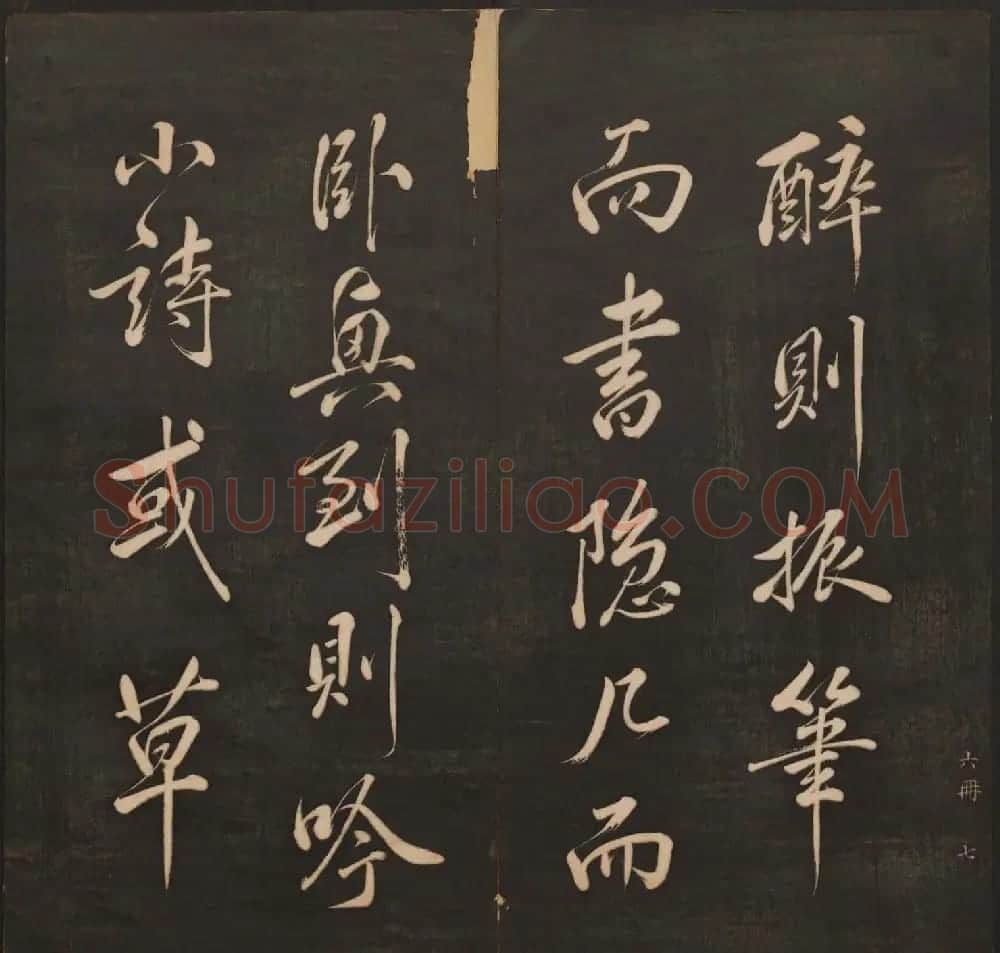 醉則振筆
而書隐几而
卧興到則吟
小詩或草
六冊 七
Shufaziliao.COM